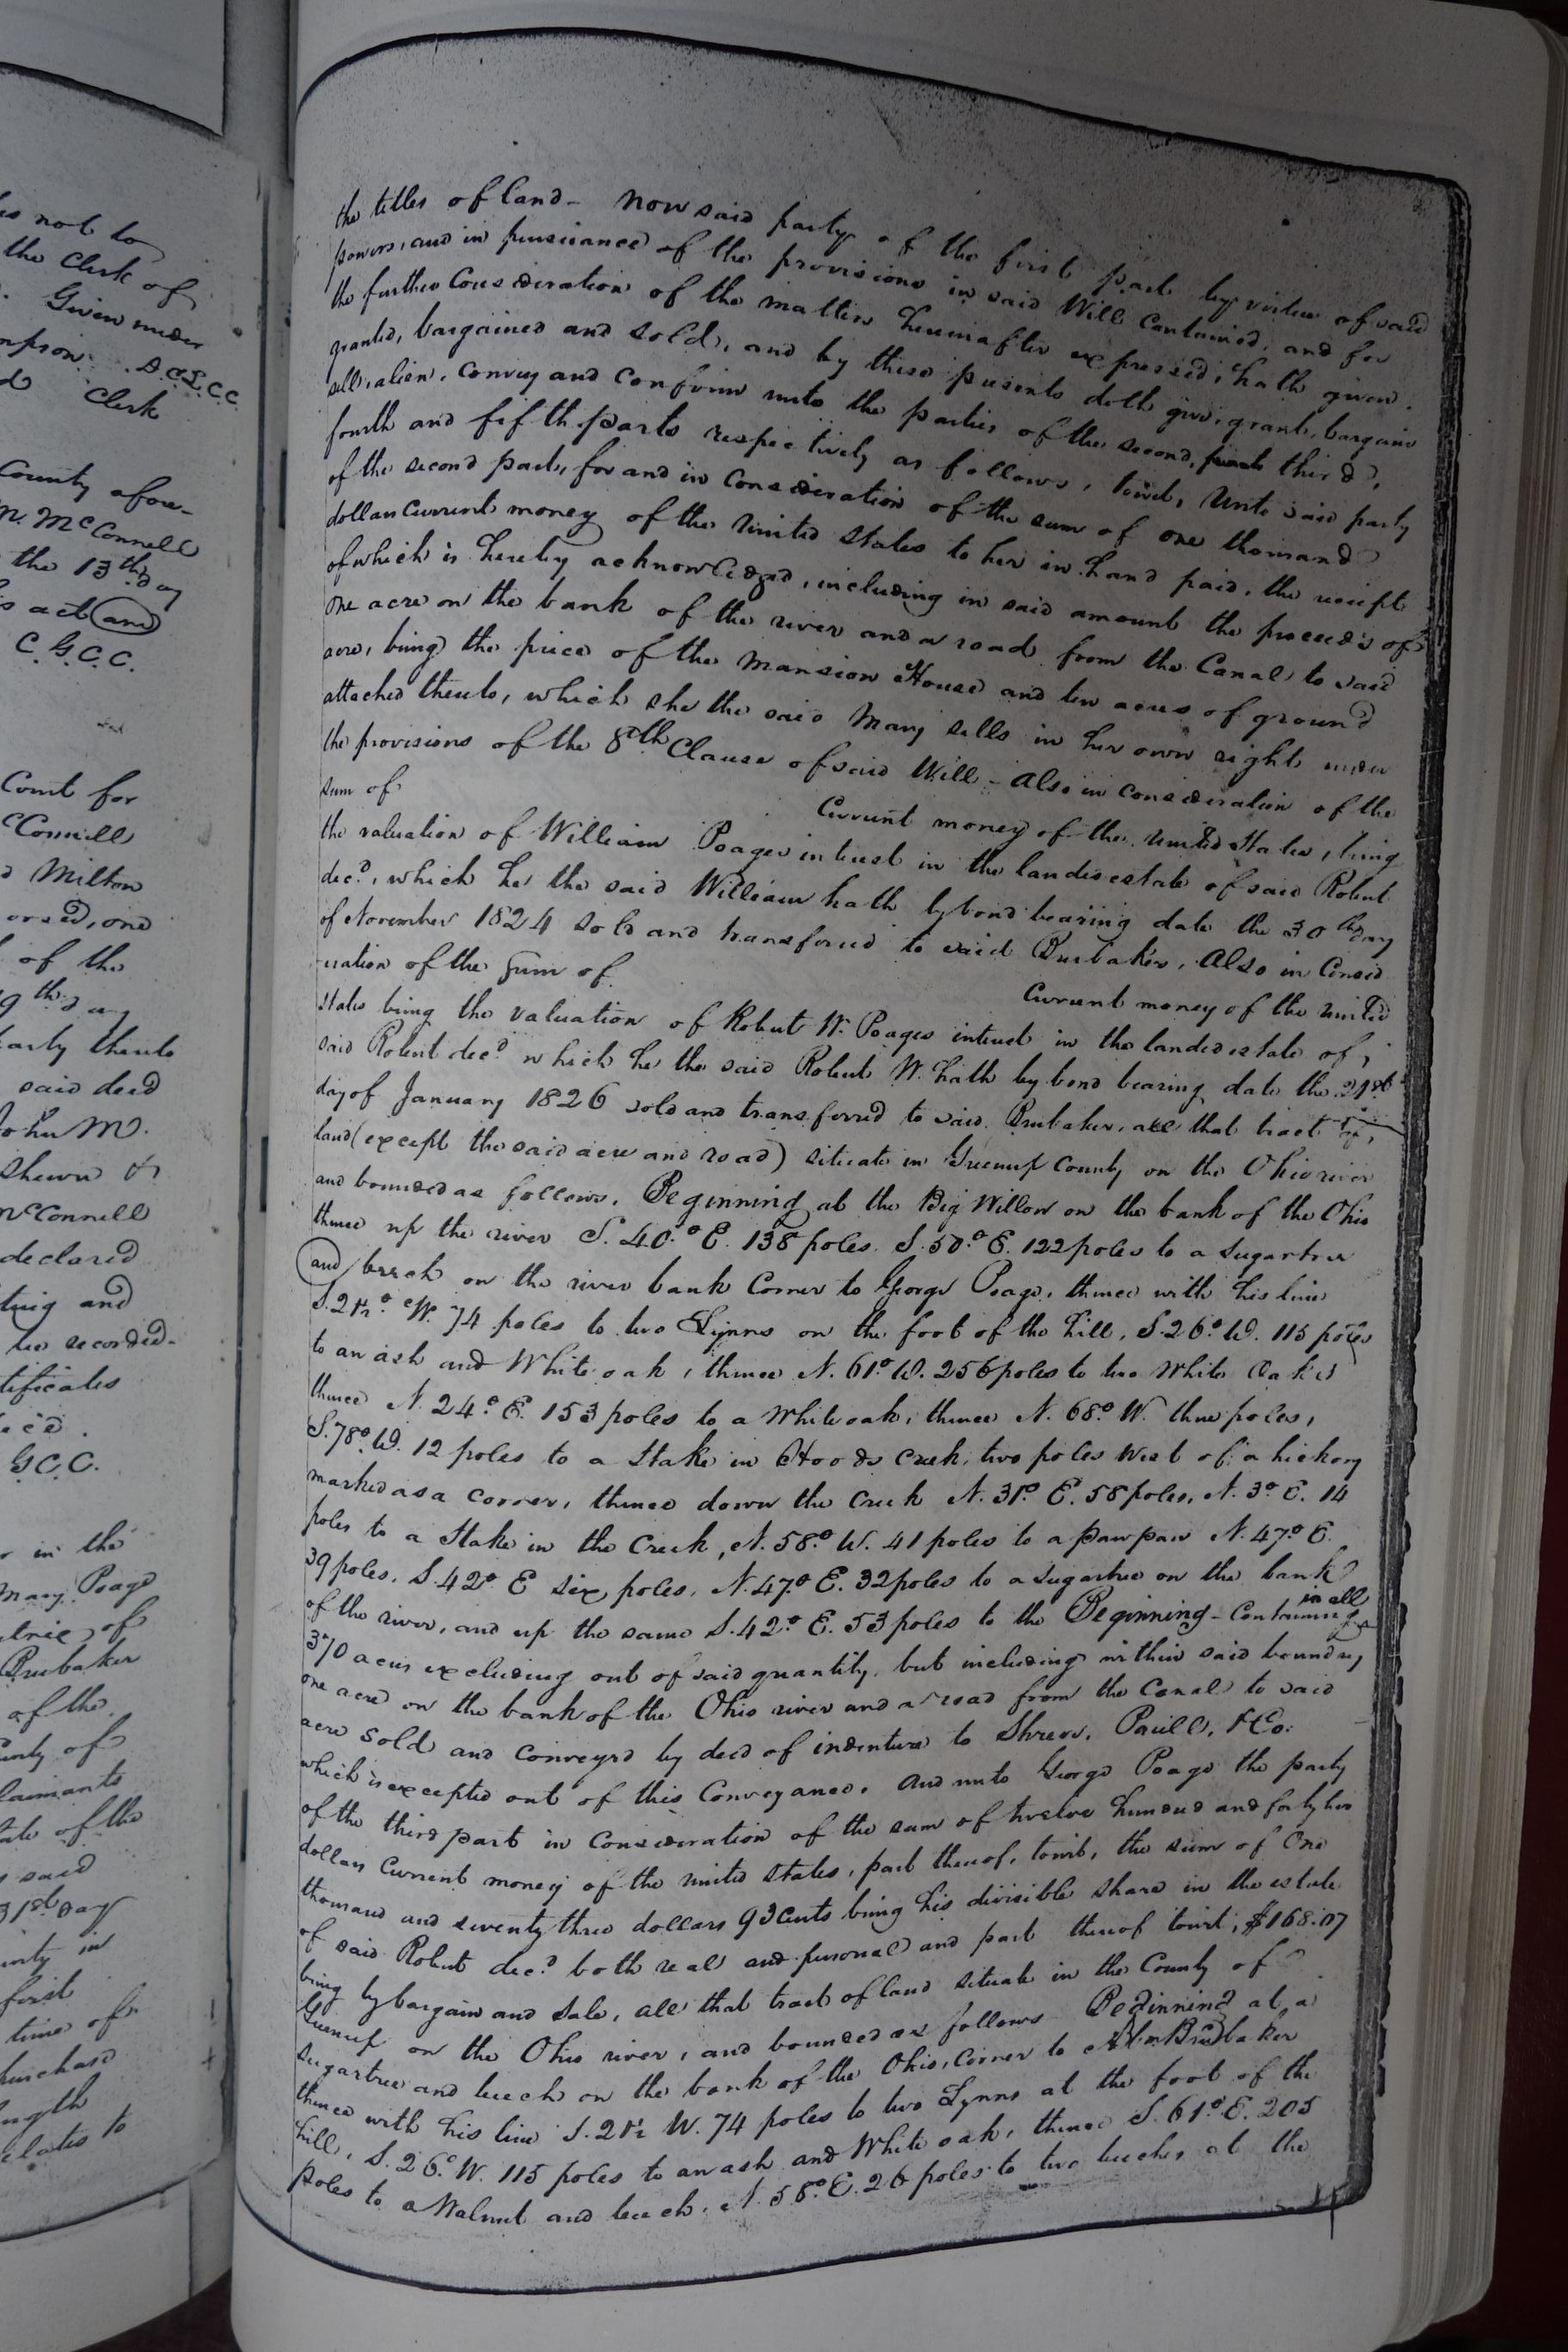 es not to
the Clerk of
Given under
mpson D.C.G.C.C.
Clerk
County afore-
m. McConnell
the 13th day
s act and
C. G. C. C.
Court for
cConnell
d Milton
orsed, one
of the
9th day
party thereto
said deed
John M.
shewn &
McConnell
declared
ting and
be recorded-
tificates
G.C.C.
r in the
Mary Poage
trix of
Brubaker
of the
unty of
laimants
ate of the
y said
31st day
unty in
first
time of
purchase
ength
elates to
the titles of land - Now said party of the first part by virtue of said
powers, and in pursuance of the provisions in said Will contained, and for
the further Consideration of the matters hereinafter expressed, hath given,
granted, bargained and sold, and by these presents doth give, grant, bargain
sell, alien, convey and confirm unto the parties of the second, third,
fourth and fifth parts respectively as follows, towit, Unto said party
of the second part, for and in Consideration of the sum of one thousand
dollars Current money of the United States to her in hand paid, the receipt
of which is hereby acknowledged, including in said amount the proceeds of
one acre on the bank of the river and a road from the Canal to said
acre, being the price of the Mansion House and ten acres of ground
attached thereto, which she the said Mary sells in her own right under
the provisions of the 8th Clause of said Will - Also in consideration of the
sum of Current money of the United States, being
the valuation of William Poages interest in the landed estate of said Robert
decd, which he the said William hath by bond bearing date the 30th day
of November 1824 sold and transferred to said Brubaker, Also in Consid
eration of the Sum of Current money of the United
States being the valuation of Robert W. Poages interest in the landed estate of
said Robert decd which he the said Robert W. hath by bond bearing date the 21st
day of January 1826 sold and transferred to said Brubaker, all that tract of
land (except the said acre and road) situate in Greenup County on the Ohio river
and bounded as follows. Beginning at the Big Willow on the bank of the Ohio
thence up the river S. 40.° E. 138 poles. S. 50.° E. 122 poles to a sugartree
and beech on the river bank Corner to George Poage, thence with his line
S. 21½° W. 74 poles to two Lynns on the foot of the hill, S. 26.° W. 115 poles
to an ash and White oak, thence N. 61.° W. 256 poles to two White Oakes
thence N. 24.° E. 153 poles to a White oak, thence N. 68.° W. three poles,
S. 78.° W. 12 poles to a Stake in Hoods Creek, two poles West of a hickory
marked as a corner, thence down the Creek N. 31.° E. 58 poles, N. 3.° E. 14
poles to a Stake in the Creek, N. 58.° W. 41 poles to a pawpaw N. 47.° E.
39 poles. S. 42.° E six poles. N. 47.° E. 32 poles to a sugartree on the bank
of the river, and up the same S. 42.° E. 53 poles to the Beginning - Containing in all
370 acres excluding out of said quantity, but including within said boundry
one acre on the bank of the Ohio river and a road from the Canal to said
acre sold and conveyed by deed of indenture to Shreve, Paull, & Co.
which is excepted out of this Conveyance. And unto George Poage the party
of the third part in Consideration of the sum of twelve hundred and forty two
dollars Current money of the United States, part thereof, towit, the sum of One
thousand and seventy three dollars 93 Cents being his divisible share in the estate
of said Robert decd both real and personal and part thereof towit, $168.07
being by bargain and sale, all that tract of land situate in the County of
Greenup on the Ohio river, and bounded as follows Beginning at a
sugartree and beech on the bank of the Ohio, corner to Abm Brubaker
thence with his line S. 21½ W. 74 poles to two Lynns at the foot of the
hill, S. 26.° W. 115 poles to an ash and White oak, thence S. 61.° E. 205
poles to a Walnut and beech, N. 58.° E. 26 poles to two beeches at the